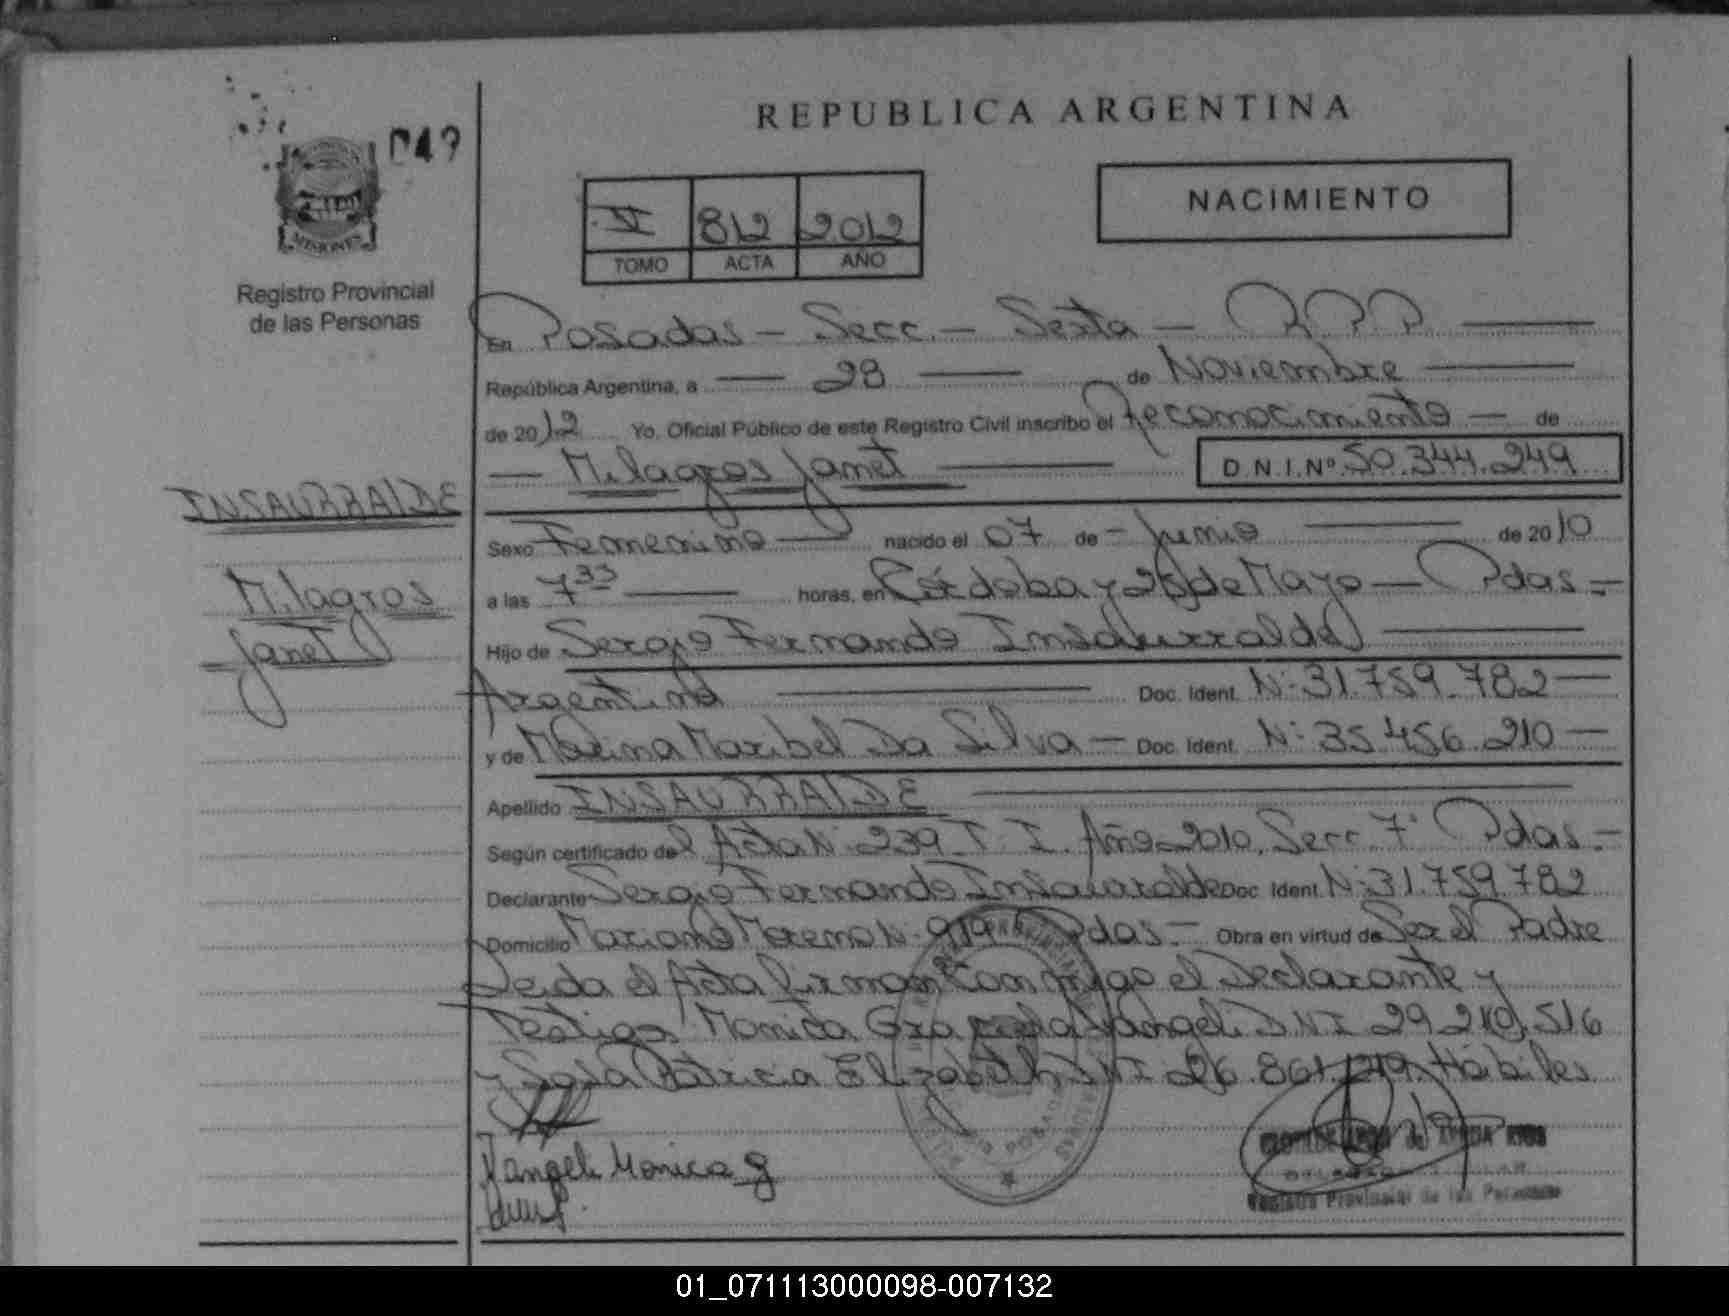 049
MISIONES
Registro Provincial
de las Personas
INSAURRALDE
Milagros
Janet
REPUBLICA ARGENTINA
VI 812 2012
TOMO ACTA AÑO
NACIMIENTO
En Posadas - Secc. - Sexta - R.P.P.
República Argentina, a 28 de Noviembre
de 2012 Yo, Oficial Público de este Registro Civil inscribo el Reconocimiento - de
Milagros Janet D.N.I.Nº 50.344.249
Sexo Femenino nacido el 07 de - Junio de 2010
a las 7 35 horas, en Córdoba y 25 de Mayo - Pdas -
Hijo de Sergio Fernando Insaurralde
Argentino Doc. Ident. Nº 31.759.782
y de Marina Maribel Da Silva - Doc. Ident. Nº 35.456.210
Apellido INSAURRALDE
Según certificado del Acta Nº 239 T. I. Año 2010, Secc. 7º Pdas -
Declarante Sergio Fernando Insaurralde Doc. Ident. Nº 31.759.782
Domicilio Mariano Moreno Nº 919 Pdas - Obra en virtud de Ser el Padre
Leida el Acta firman Conmigo el Declarante y
Testigos Monica Graciela Yangeli D.N.I 29.210.516
y Sosa Patricia Elizabeth DNI 26.861.219. Hábiles
Yangeli Monica g
Registro Provincial de las Personas
01_071113000098-007132